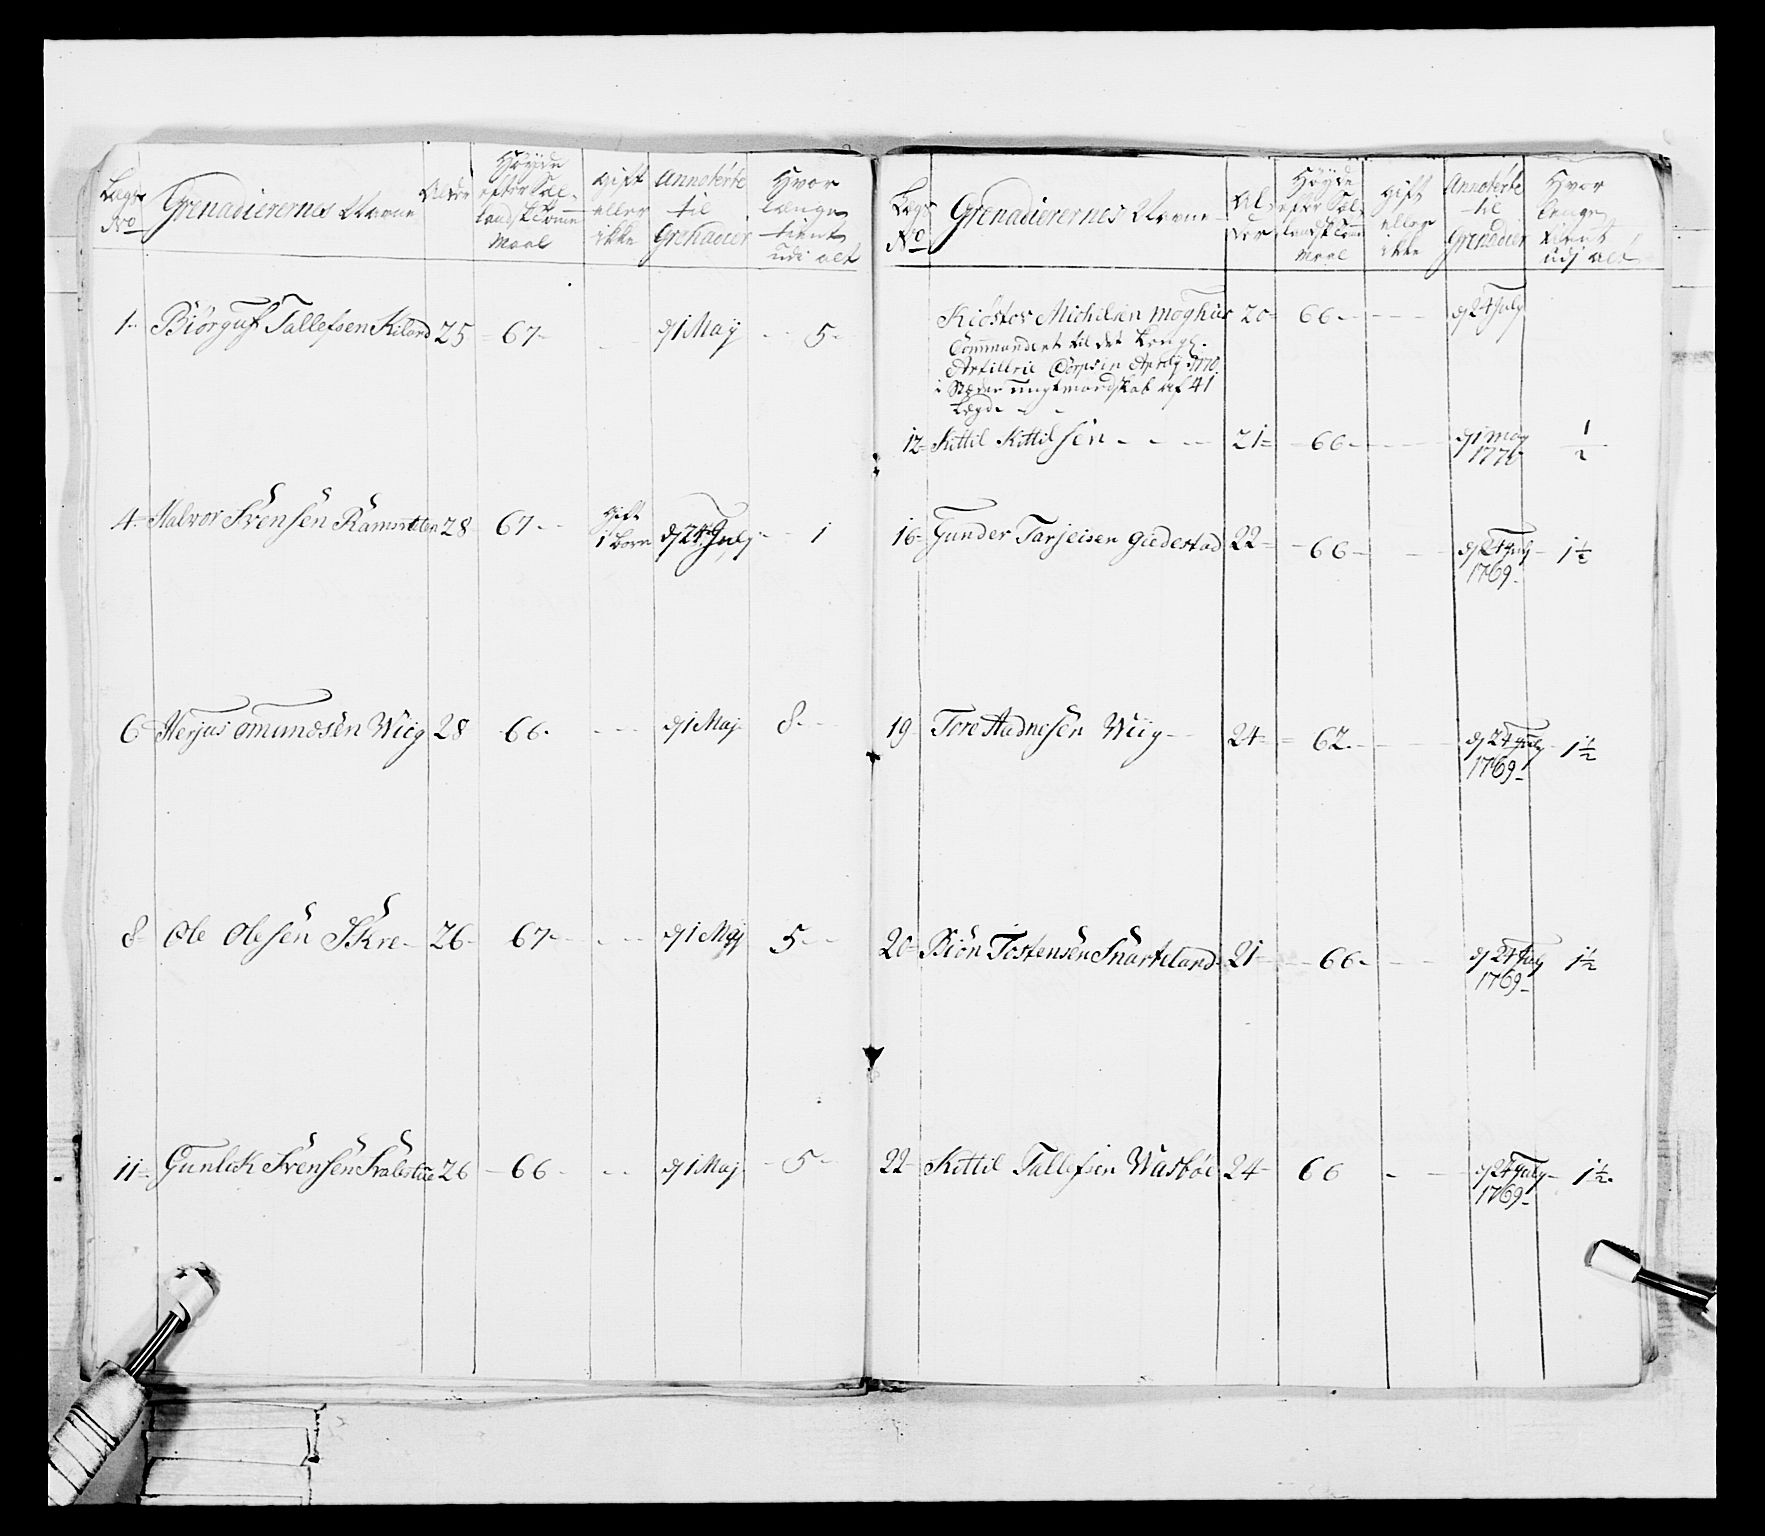 Lægs No
Grenadierernes Navne
Alder
Høyde efter Sællandsk Tomme Maal
Gift eller ikke
Annoterte til Grenadier
Hvor længe tient udi alt
1 Biörguf Tallefsen Kiland 25 67 d 1 Maÿ 5
4 Halvor Svensen 28 67 Gift 1 Born d 24 July 1
6 Herjus Omundsen Wiig 28 66 d 1 Maj 8
8 Ole Olesen Skre 26 67 d 1 Maÿ 5
11 Gunlek Svensen 26 66 d 1 Maj 5
Lægs No
Grenadierernes Navne
Alder
Høyde efter Sællandsk Tomme Maal
Gift eller ikke
Annoterte til Grenadier
Hvor længe tient udj alt
Kiöstov Michelsen 20 66 d 24 July
Commandert til det Kongl.
Artillerie Corps in April 1770
i Stæden ungtmandskab af 41
Lægd
12 Kittil Kittilsen 21 66 d 1 May 1770 1/2
16 Gunder Tarjeisen Giedestad 22 66 d 24 July 1769 1 1/2
19 Tore Aadnesen Wiig 24 62 d 24 July 1769 1 1/2
20 Biön Tostensen Snarteland 21 66 d 24 July 1769 1 1/2
22 Kittil Tallefsen Wasböe 24 66 d 24 July 1769 1 1/2